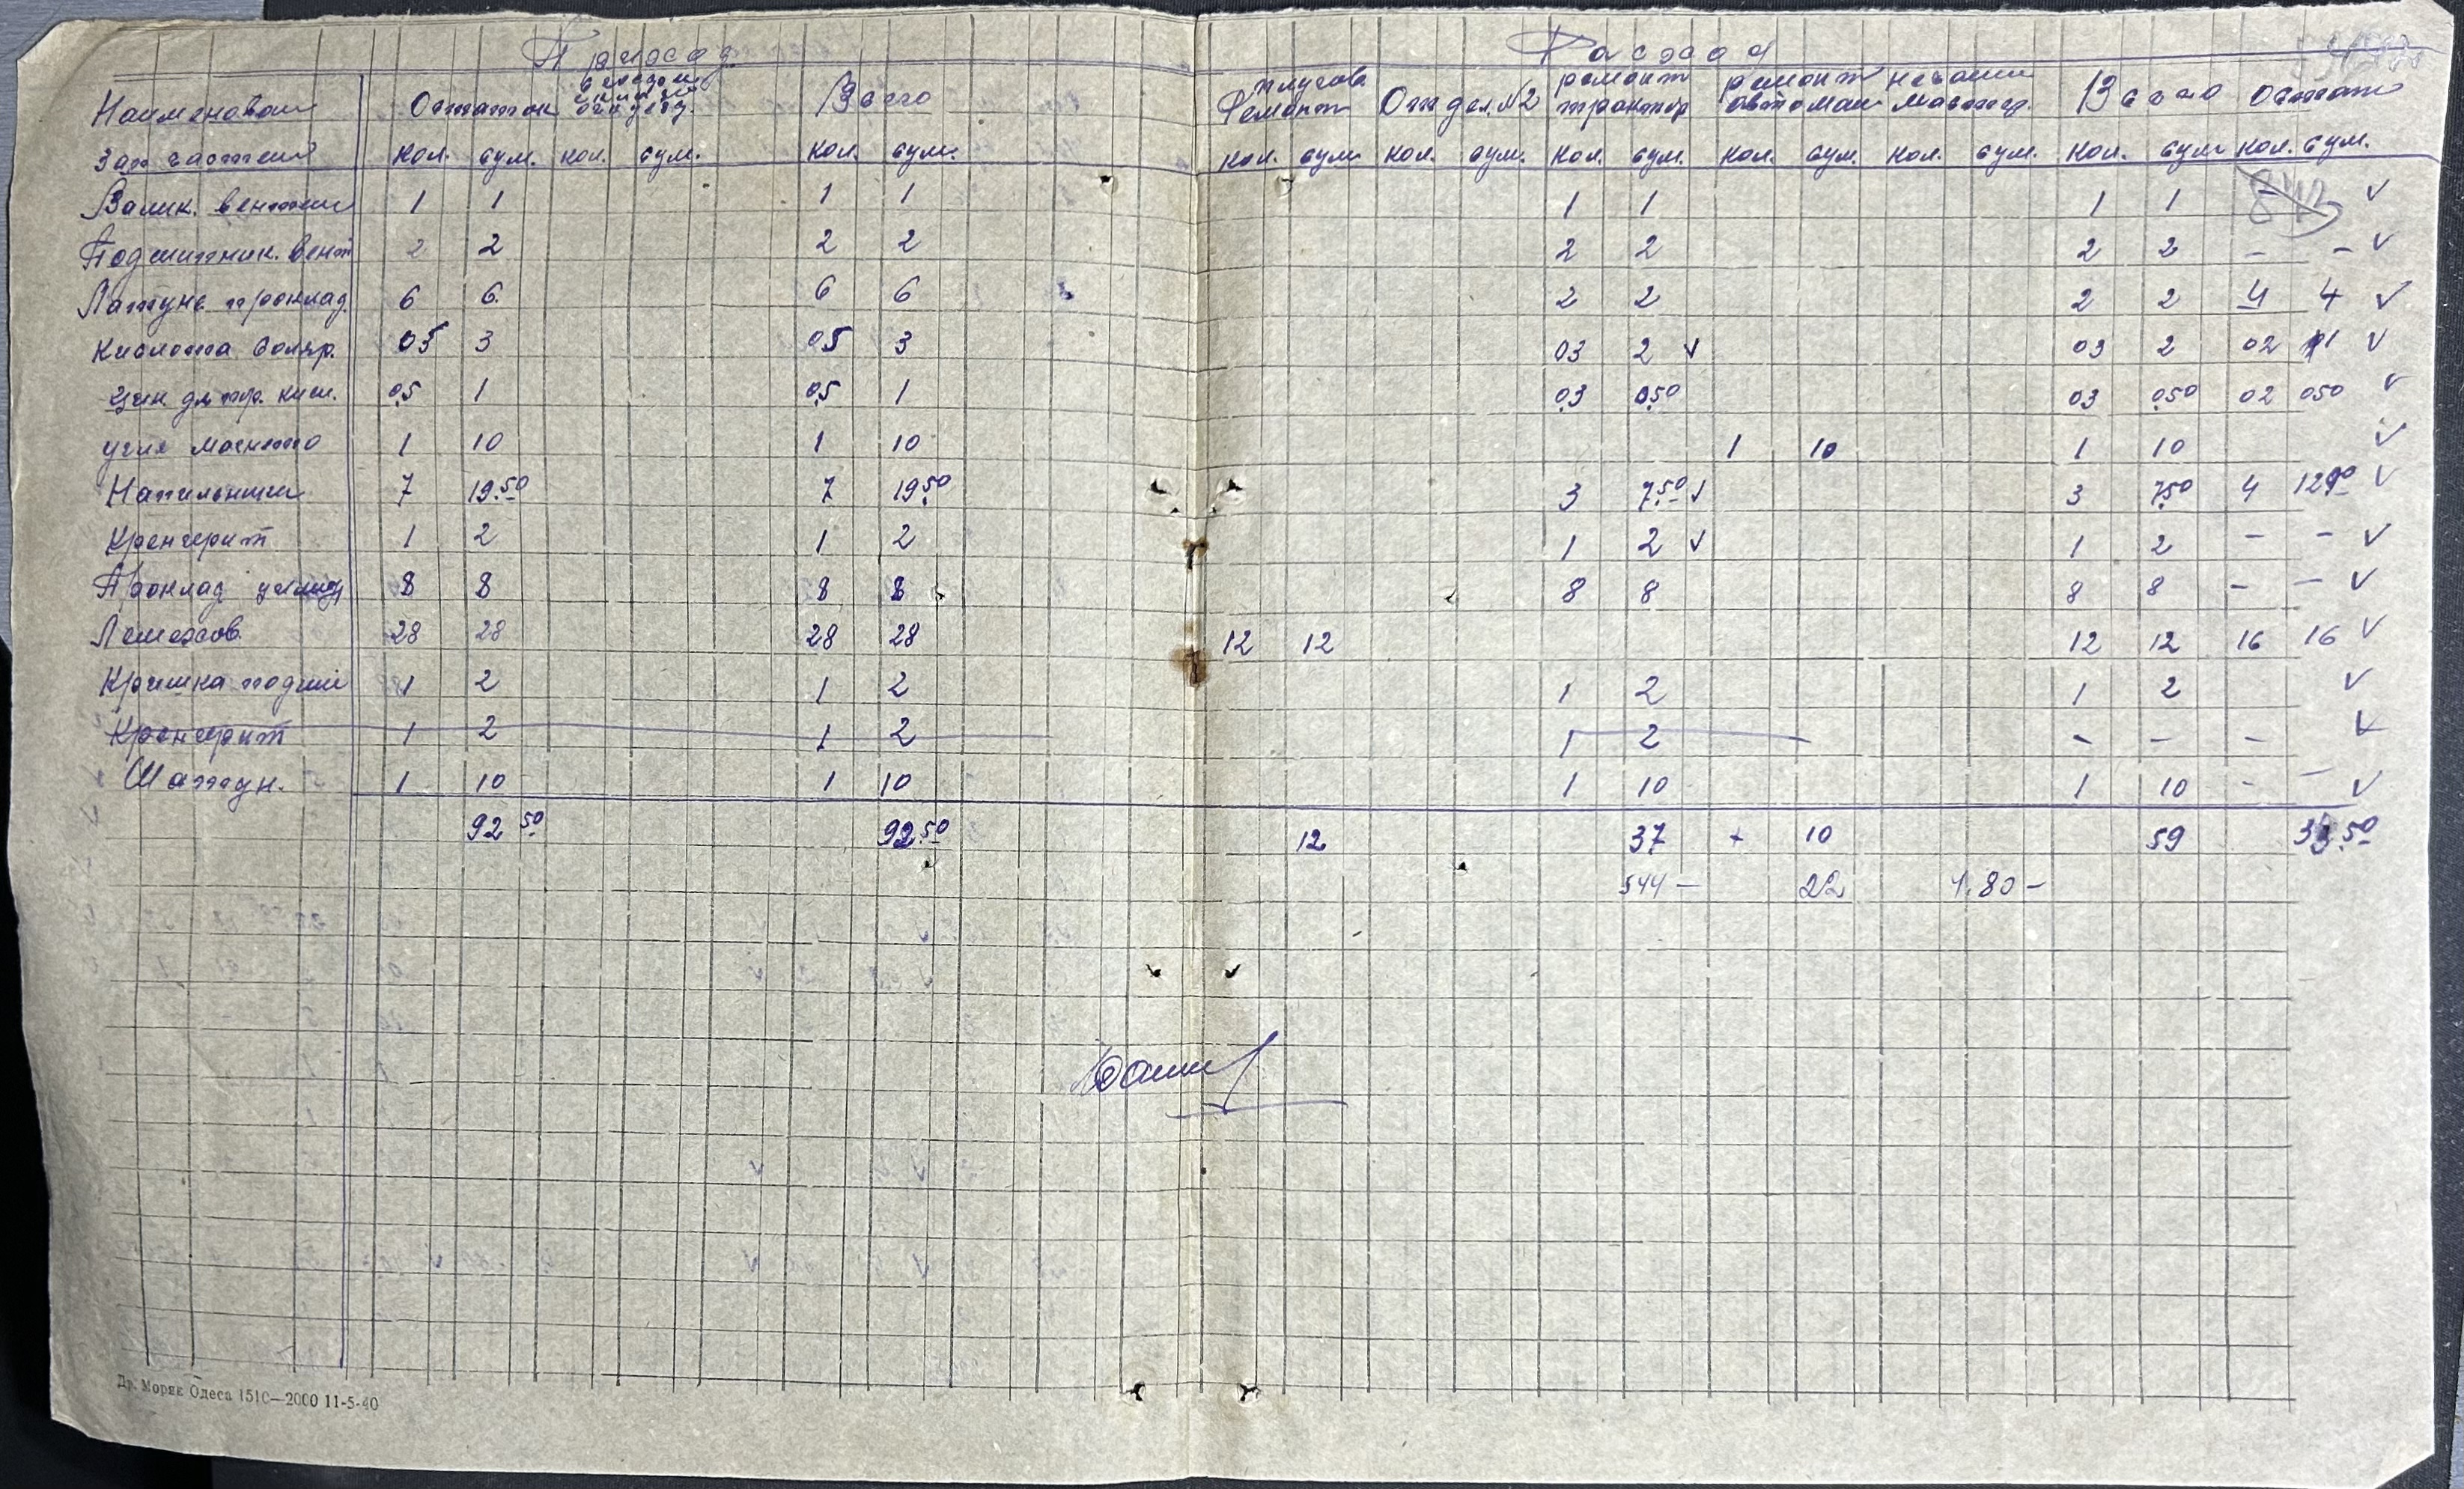 Приход Расход
Наименован Остаток Всего Ремонт плугов Отдел. №2 ремонт трактор ремонт автомаш Всего Остат
Зап частей кол. сум. кол. сум. кол. сум. кол. сум кол. сум. кол. сум. кол. сум. кол. сум. кол. сум кол. сум.
Валик. вентил 1 1 1 1 1 1 1 1 843 ✓
Подшипник. вент 2 2 2 2 2 2 2 2 – – ✓
Латунь проклад. 6 6 6 6 2 2 2 2 4 4 ✓
Кислота соляр. 05 3 05 3 03 2 ✓ 03 2 02 1 ✓
Цин. для тр. кисл. 0,5 1 0,5 1 0,3 0,50 03 0,50 02 050 ✓
угля магнето 1 10 1 10 1 10 1 10 ✓
Напильники 7 19.50 7 19.50 3 7.50 ✓ 3 7.50 4 12.00 ✓
Кронерит 1 2 1 2 1 2 ✓ 1 2 – – ✓
Проклад 8 8 8 8 8 8 8 8 – – ✓
Лемехов 28 28 28 28 12 12 12 12 16 16 ✓
Кришка подши 1 2 1 2 1 2 1 2 ✓
Кронерит 1 2 1 2 1 2 – – – ✓
Шатун. 1 10 1 10 1 10 1 10 – – ✓
92 50 92.50 12 37 + 10 59 33.50
544 – 22 1.80 –
Др. Моряк Одеса 151С—2000 11-5-40